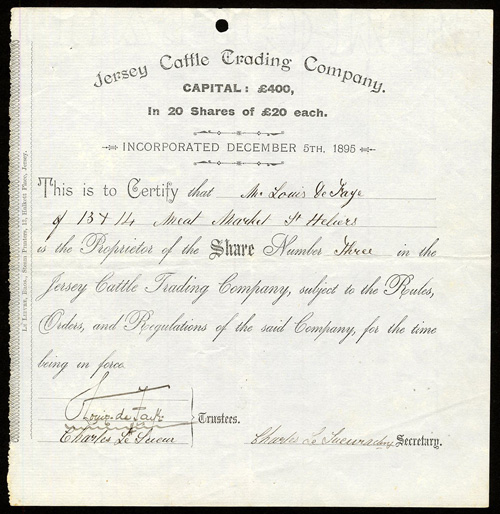 Jersey Cattle Trading Company.
CAPITAL: £400,
In 20 Shares of £20 each.
INCORPORATED DECEMBER 5TH, 1895
This is to Certify that Mr. Louis De Faye
of 13 & 14 Meat Market St Heliers
is the Proprietor of the Share Number Three in the
Jersey Cattle Trading Company, subject to the Rules,
Orders, and Regulations of the said Company, for the time
being in force.
Louis de
Charles Le Sueur
Trustees.
Charles Le Sueur Secretary.
Le Lievre, Bros., Steam Printers, Halkett Place, Jersey.